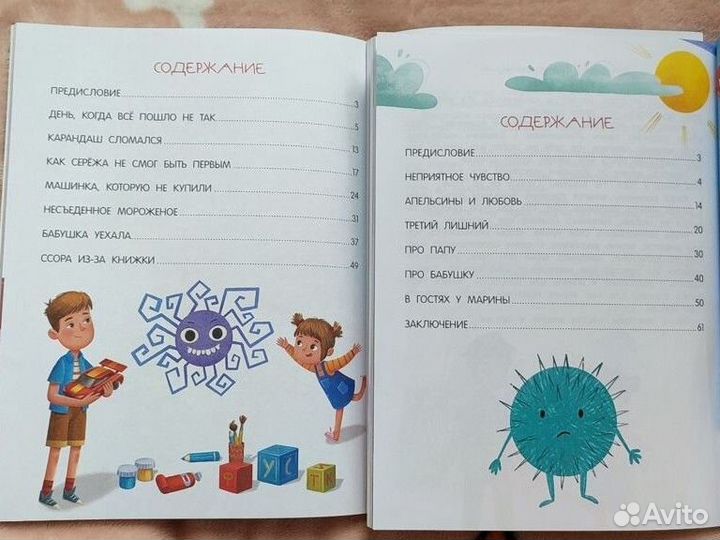 СОДЕРЖАНИЕ
ПРЕДИСЛОВИЕ 3
ДЕНЬ, КОГДА ВСЁ ПОШЛО НЕ ТАК 5
КАРАНДАШ СЛОМАЛСЯ 13
КАК СЕРЁЖА НЕ СМОГ БЫТЬ ПЕРВЫМ 17
МАШИНКА, КОТОРУЮ НЕ КУПИЛИ 24
НЕСЪЕДЕННОЕ МОРОЖЕНОЕ 31
БАБУШКА УЕХАЛА 37
ССОРА ИЗ-ЗА КНИЖКИ 49
У С Т
СОДЕРЖАНИЕ
ПРЕДИСЛОВИЕ 3
НЕПРИЯТНОЕ ЧУВСТВО 4
АПЕЛЬСИНЫ И ЛЮБОВЬ 14
ТРЕТИЙ ЛИШНИЙ 20
ПРО ПАПУ 30
ПРО БАБУШКУ 40
В ГОСТЯХ У МАРИНЫ 50
ЗАКЛЮЧЕНИЕ 61
Avito